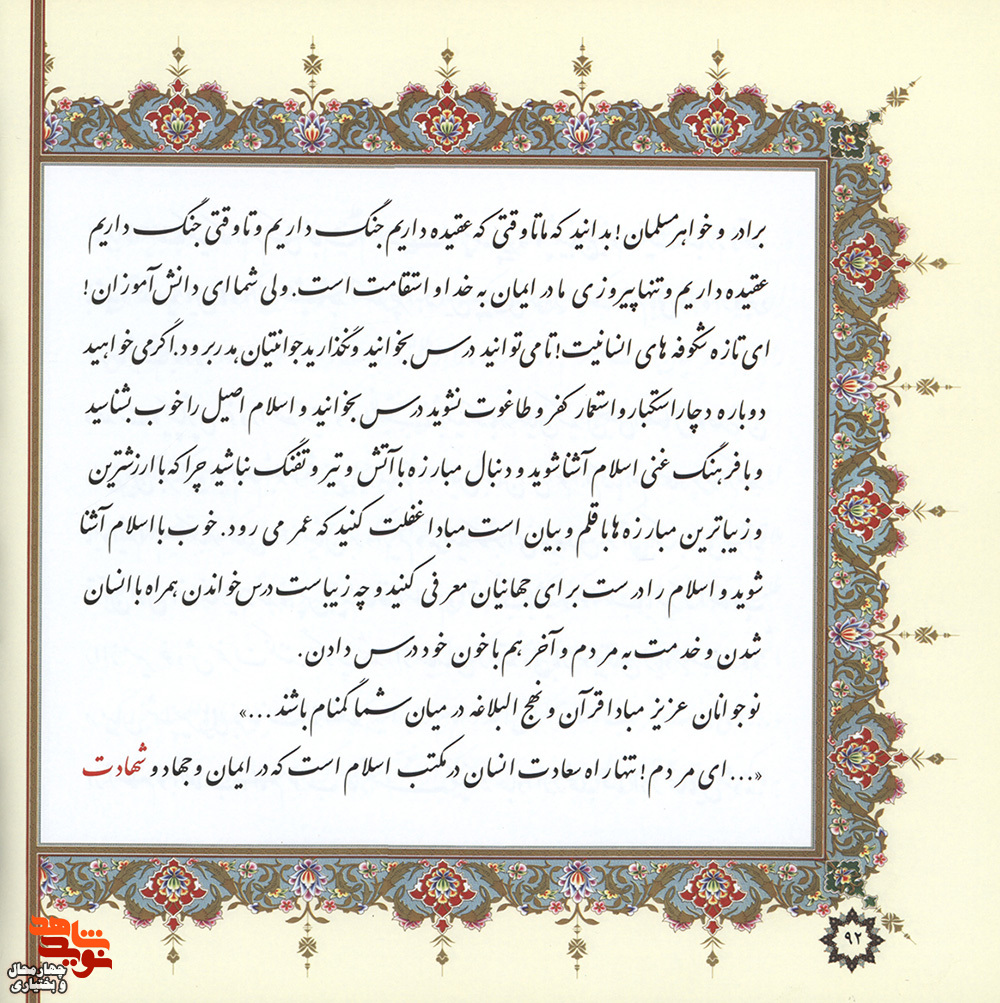 برادر و خواهر مسلمان! بدانید که ما تا وقتی که عقیده داریم جنگ داریم و تا وقتی جنگ داریم
عقیده داریم و تنها پیروزی ما در ایمان به خدا و استقامت است. ولی شما ای دانش‌آموزان!
ای تازه شکوفه های انسانیت! تا می توانید درس بخوانید و نگذارید جوانتیان هدر برود. اگر می خواهید
دوباره دچار استکبار و استعمار کفر و طاغوت نشوید درس بخوانید و اسلام اصیل را خوب بشناسید
و با فرهنگ غنی اسلام آشنا شوید و دنبال مبارزه با آتش و تیر و تفنگ نباشید چرا که با ارزشترین
و زیباترین مبارزه ها با قلم و بیان است مبادا غفلت کنید که عمر می رود. خوب با اسلام آشنا
شوید و اسلام را درست برای جهانیان معرفی کنید و چه زیباست درس خواندن همراه با انسان
شدن و خدمت به مردم و آخر هم با خون خود درس دادن.
نوجوانان عزیز مبادا قرآن و نهج البلاغه در میان شما گمنام باشند ...»
«... ای مردم! تنها راه سعادت انسان در مکتب اسلام است که در ایمان و جهاد و شهادت
۹۲
نوید شاهد
چهارمحال
و بختیاری